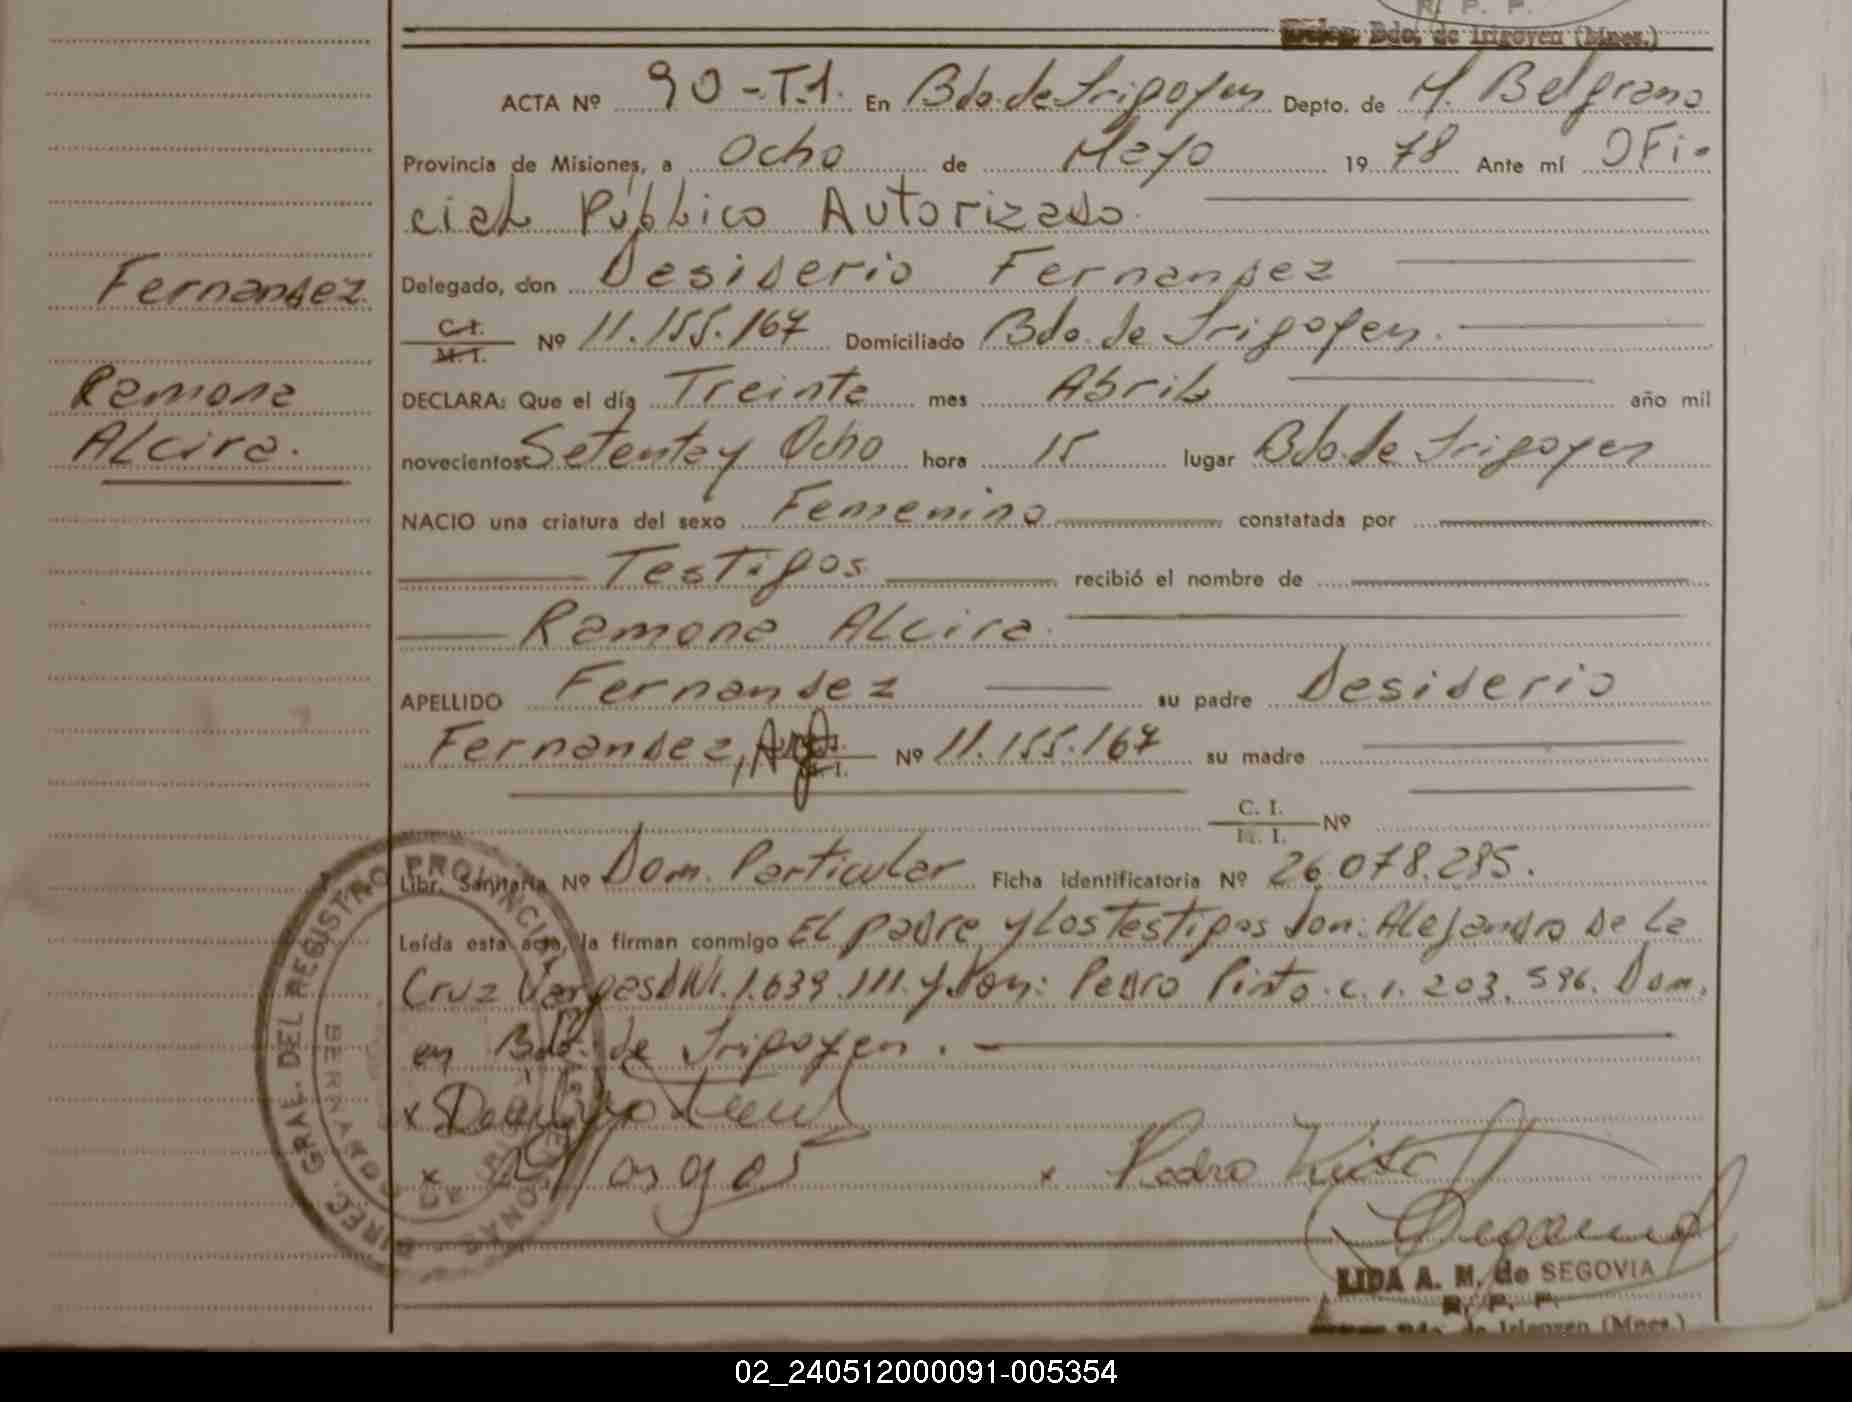 R. P. P.
Bdo. de Irigoyen (Mnes.)
ACTA Nº 90-T.1. En Bdo. de Irigoyen Depto. de M. Belgrano
Provincia de Misiones, a Ocho de Mayo 1978 Ante mí OFi-
cial Público Autorizado.
Fernandez
Delegado, don Desiderio Fernandez
C.I. M. I. Nº 11.155.167 Domiciliado Bdo. de Irigoyen.
Ramona
DECLARA: Que el día Treinta mes Abril año mil
Alcira.
novecientos Setenta y Ocho hora 15 lugar Bdo. de Irigoyen
NACIO una criatura del sexo Femenino constatada por
Testigos recibió el nombre de
Ramona Alcira.
APELLIDO Fernandez su padre Desiderio
Fernandez, Arg. Nº 11.155.167 su madre
C. I. M. I. Nº
Libr. Sanitaria Nº Dom. Particular Ficha identificatoria Nº 26.078.285.
Leída esta acta, la firman conmigo El padre y Los Testigos don: Alejandro De La
Cruz Vargas DNI. 1.639.111. y don: Pedro Pinto. C. I. 203.596. Dom.
en Bdo. de Irigoyen.
x
x x Pedro
DIREC. GRAL. DEL REGISTRO PROVINCIAL
LIDA A. M. de SEGOVIA
R. P. P.
Bdo. de Irigoyen (Mnes.)
02_240512000091-005354